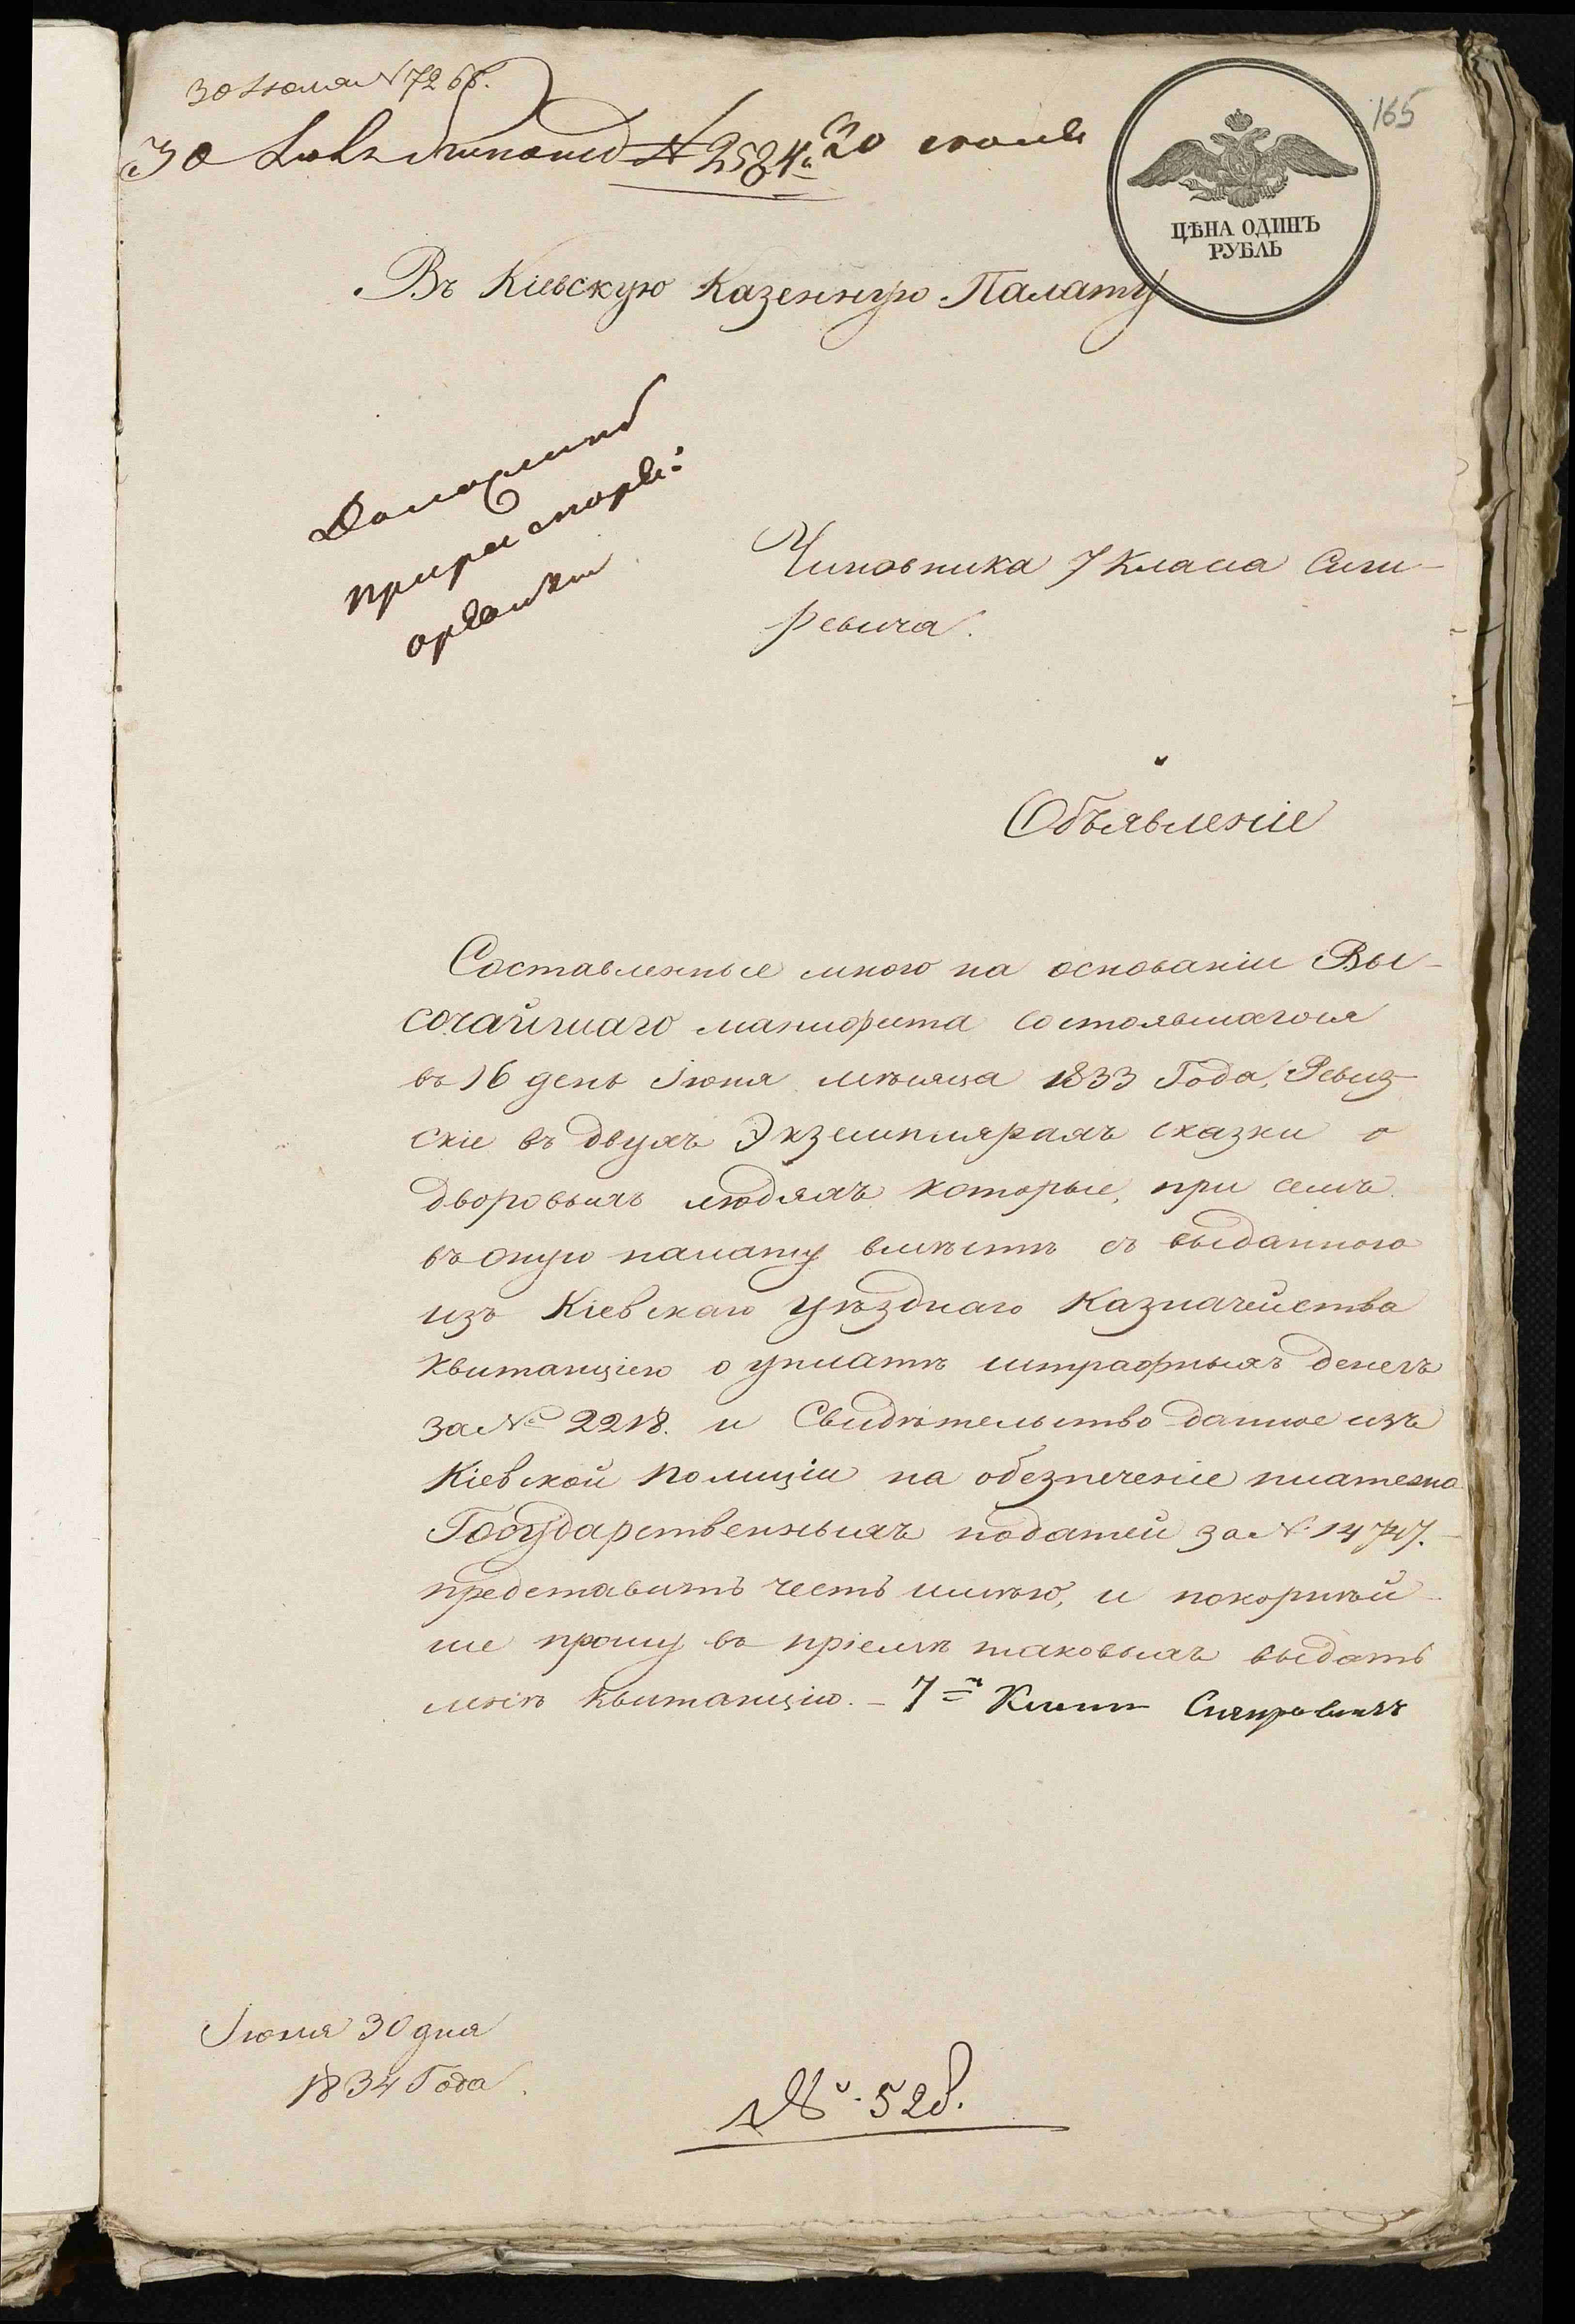 30 Июля N 7266.
165
30 № 2584. 30 июля
ЦѢНА ОДИНЪ
РУБЛЬ
Въ Кіевскую Казенную Палату
Доложить
при
Чиновника 7 Класса Сги-
ревича.
Объявленіе
Составленные мною на основаніи Вы-
сочайшаго манифеста состоявшагося
въ 16 день Іюня мѣсяца 1833 Года, Ревиз-
скіе въ двухъ Экземплярахъ сказки о
дворовыхъ людяхъ которые, при семъ
въ оную палату вмѣстѣ съ выданною
изъ Кіевскаго уѣзднаго Казначейства
Квитанціею о уплатѣ штрафныхъ денегъ
за № 2218. и Свидѣтельство данное изъ
Кіевской Полиціи на обезпеченіе платежа
Государственныхъ податей за N. 14747.
представить честь имѣю, и покорнѣй-
ше прошу въ пріемѣ таковыхъ выдать
мнѣ квитанцію. - 7
Іюля 30 дня
1834 Года.
№ 528.